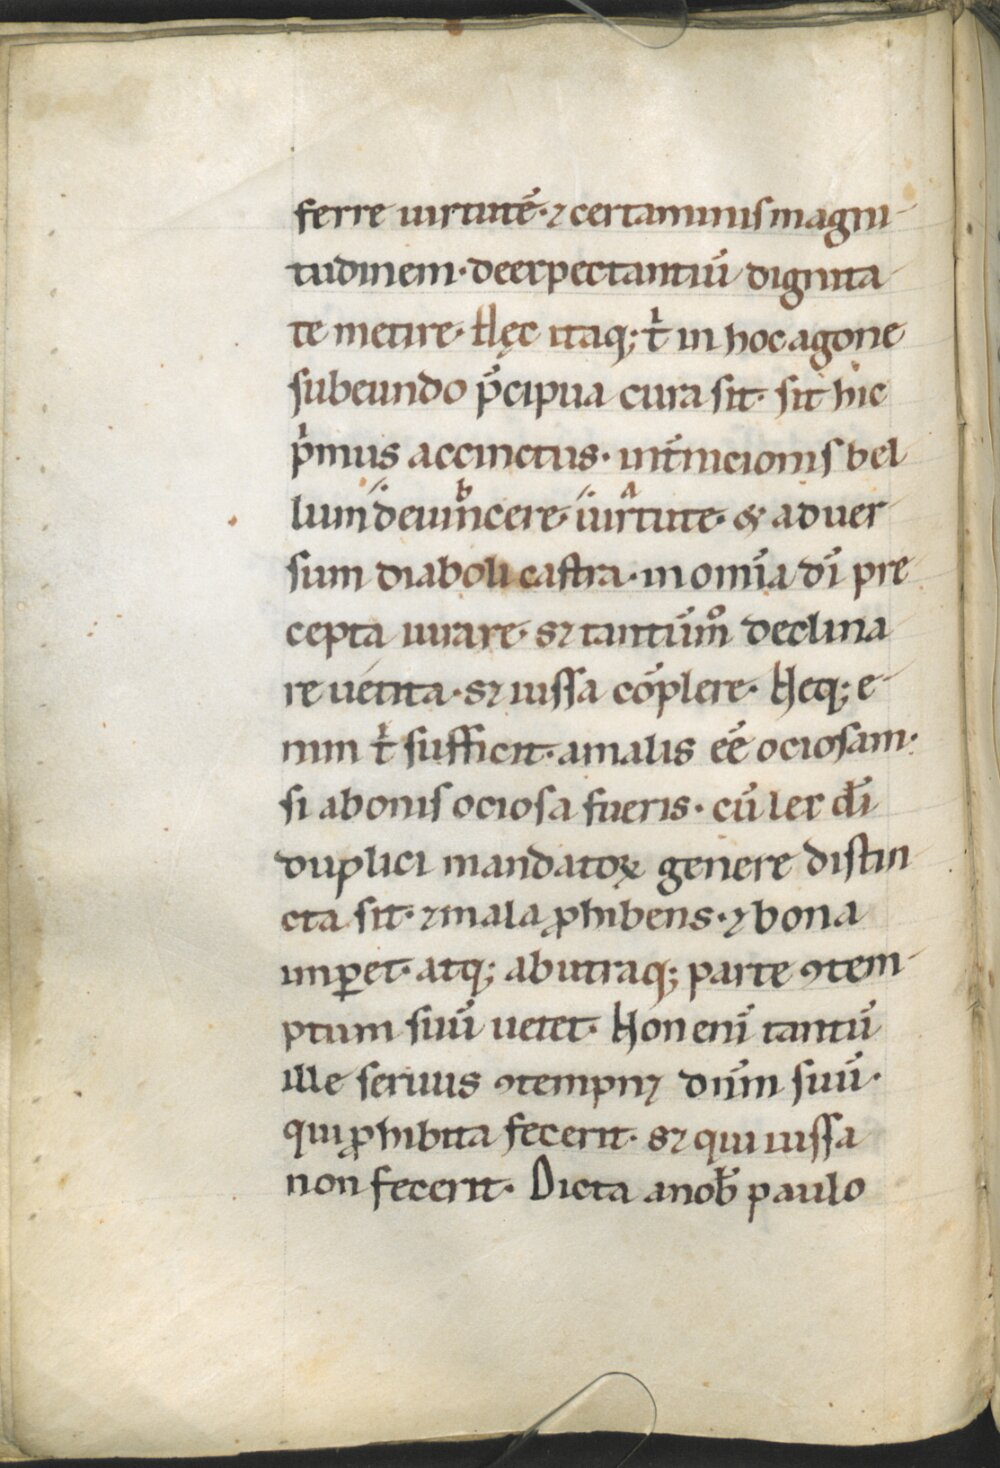 ferre uirtutē· ⁊ certaminis magni-
tudinem· de expectantiū dignita-
te metire· Hęc itaq; t̓ in hoc agone
subeundo p̄cipua cura sit· sit hic
p̓mus accinctus· int̄nicionis bel-
lum b deuincere· a uirtute· & aduer-
sum diaboli castra· in omīa dī pre-
cepta iurare· s⁊ tantūm̊ declina-
re uetita· s⁊ iussa cōplere· Neq; e-
nim t̓ sufficit· a malis eē ociosam·
si a bonis ociosa fueris· cū lex dī
duplici mandatoꝝ genere distin-
cta sit· ⁊ mala ꝓhibens· ⁊ bona
imꝑet· atq; ab utraq; parte ꝯtem-
ptum suū uetet· Non enī tantū
ille seruus ꝯtempn⁊ dn̄m suū·
qui ꝓhibita fecerit· s⁊ qui iussa
non fecerit· Dicta a nob̄ paulo